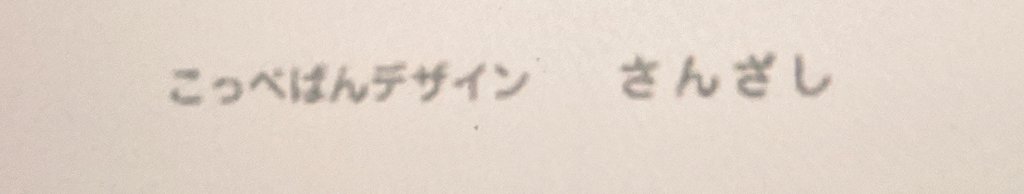 こっぺぱんデザイン　さんざし